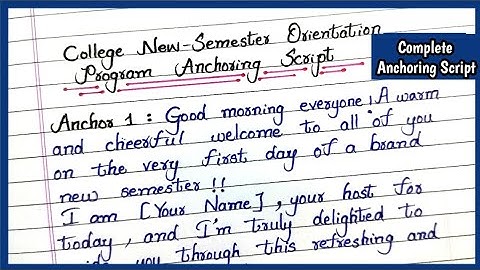 College New-Semester Orientation
Program Anchoring Script
Complete
Anchoring Script
Anchor 1 : Good morning everyone! A warm
and cheerful welcome to all of you
on the very first day of a brand
new semester!!
I am [Your Name], your host for
today, and I'm truly delighted to
you through this refreshing and